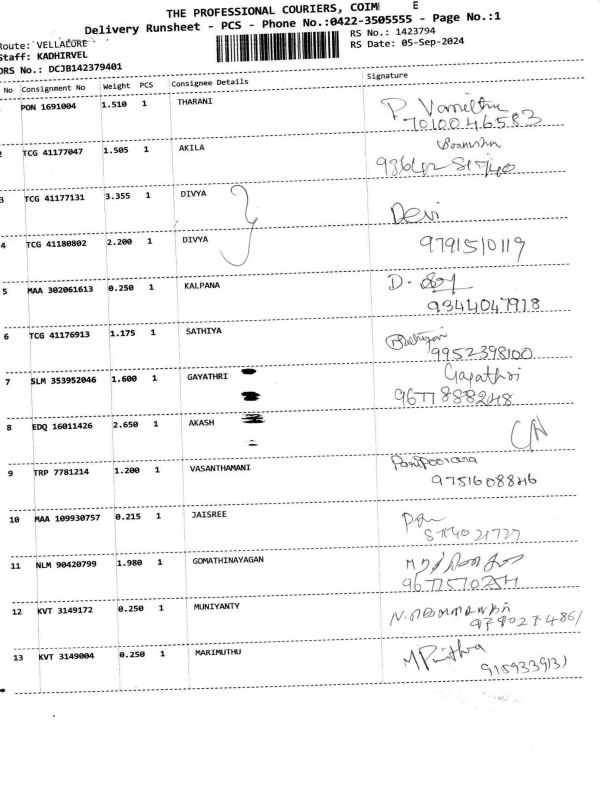 THE PROFESSIONAL COURIERS, COIM E
Delivery Runsheet - PCS - Phone No.:0422-3505555 - Page No.:1
Route: VELLALORE
RS No.: 1423794
Staff: KADHIRVEL
RS Date: 05-Sep-2024
DRS No.: DCJB142379401
No Consignment No Weight PCS Consignee Details Signature
PON 1691004 1.510 1 THARANI P. Vamithra
7010046583
2 TCG 41177047 1.505 1 AKILA
3 TCG 41177131 3.355 1 DIVYA Devi
4 TCG 41180802 2.200 1 DIVYA 9791510119
5 MAA 302061613 0.250 1 KALPANA D.
9344047978
6 TCG 41176913 1.175 1 SATHIYA
9952398100
7 SLM 353952046 1.600 1 GAYATHRI Gayathri
9677888248
8 EDQ 16011426 2.650 1 AKASH CN
9 TRP 7781214 1.200 1 VASANTHAMANI Paripoorana
9751608846
10 MAA 109930757 0.215 1 JAISREE
11 NLM 90420799 1.980 1 GOMATHINAYAGAN
12 KVT 3149172 0.250 1 MUNIYANTY
9790274861
13 KVT 3149004 0.250 1 MARIMUTHU M Pavithra
9159339131